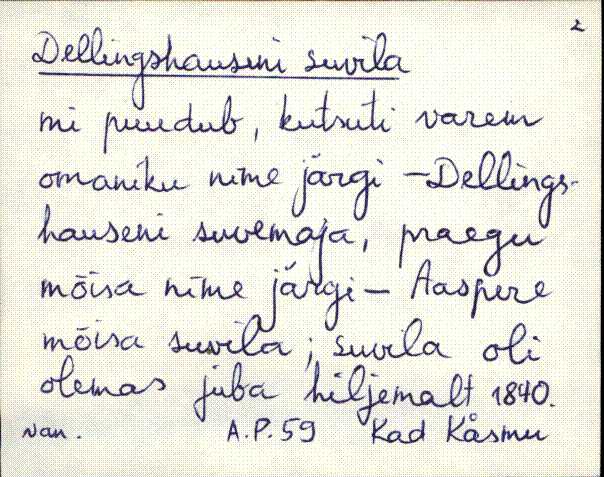 2
Dellingshauseni suvila
mi puudub, kutsuti varem
omaniku nime järgi – Dellings-
hauseni suvemaja, praegu
mõisa nime järgi – Aaspere
mõisa suvila; suvila oli
olemas juba hiljemalt 1840.
Nan. A.P.59 Kad Käsmu